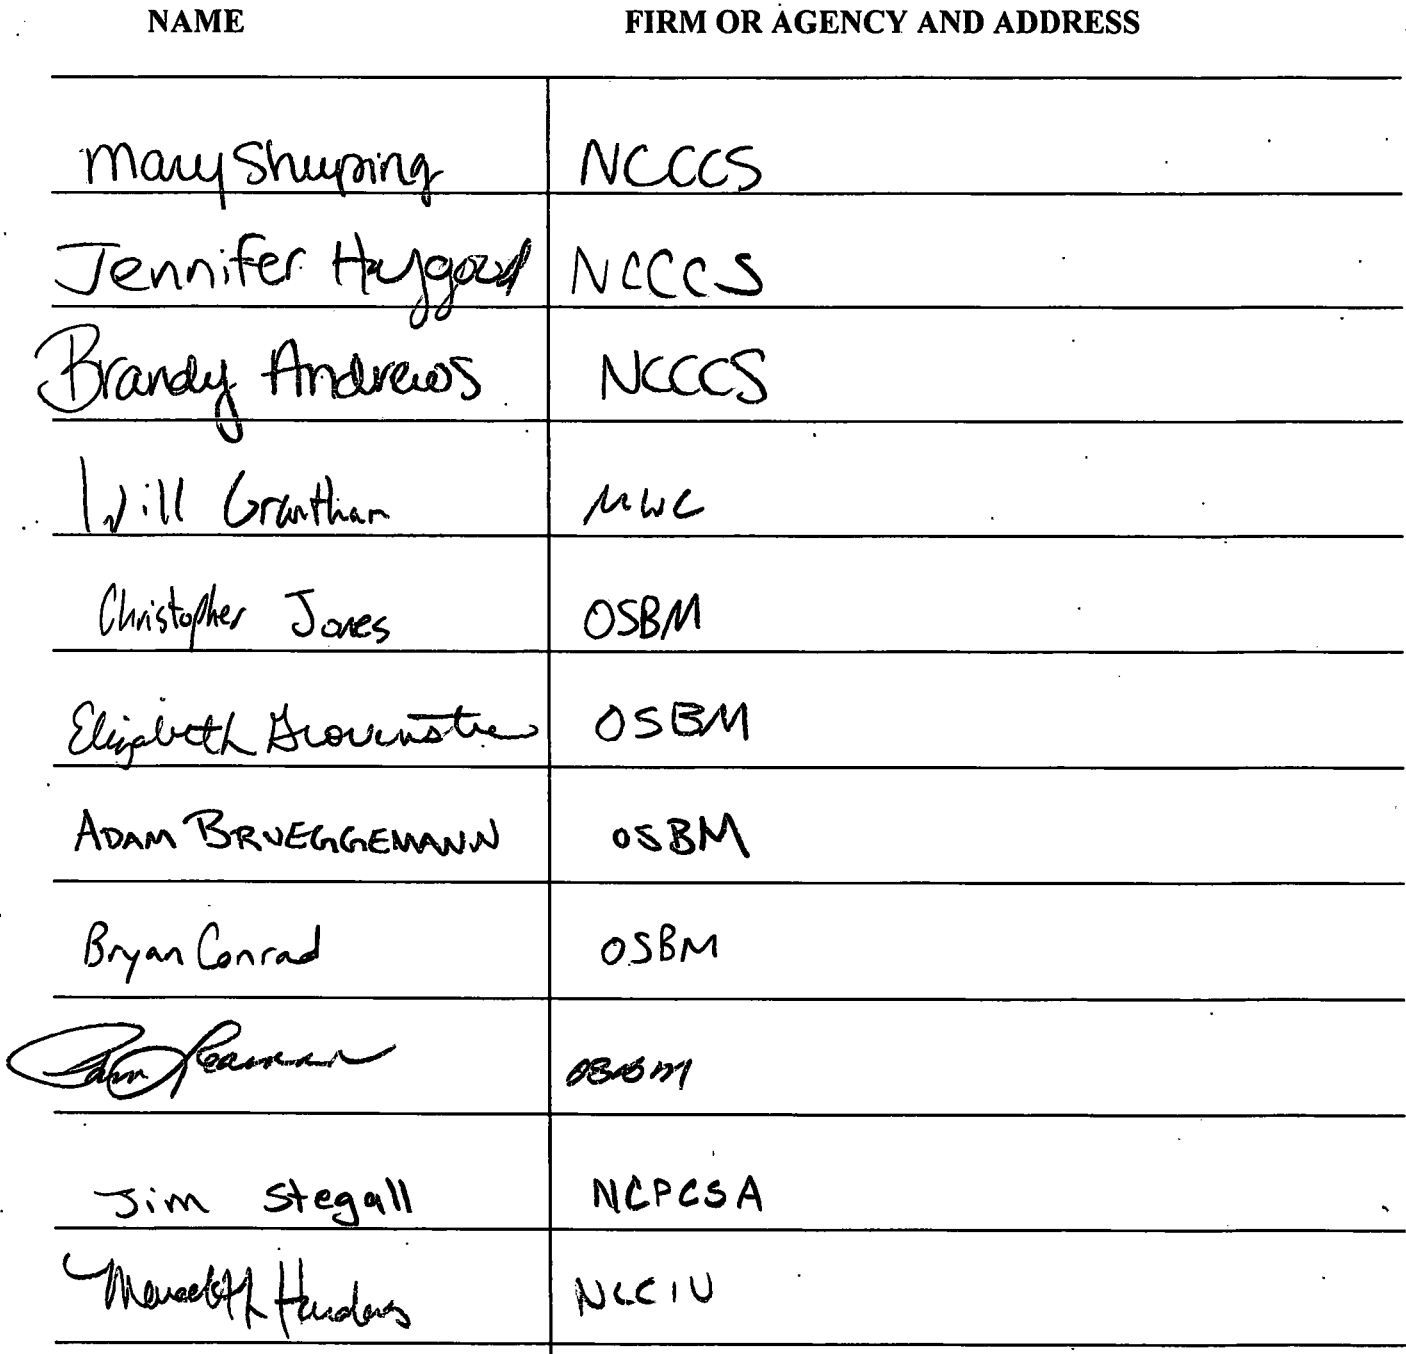 NAME FIRM OR AGENCY AND ADDRESS
Mary Shuping NCCCS
Jennifer Haygood NCCCS
Brandy Andrews NCCCS
Will Grantham MWC
Christopher Jones OSBM
Elizabeth Grovenstein OSBM
ADAM BRUEGGEMANN OSBM
Bryan Conrad OSBM
Pam
Jim Stegall NCPCSA
Meredith Henderson NCCIU